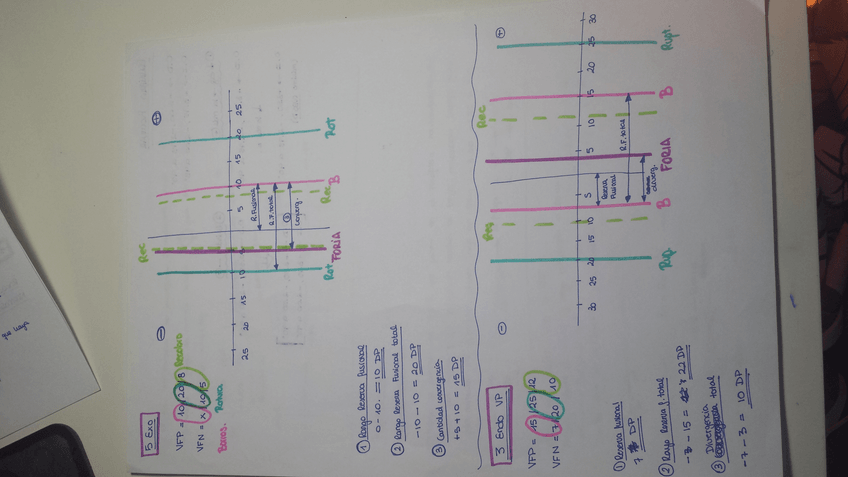 5 Exo
VFP = 10/20/8 Recobro
VFN = x/10/5
Borros. Rotura
① Rango Reserva fusional
0 - 10. = 10 DP
② Rango Reserva Fusional total
-10 - 10 = 20 DP
③ Cantidad convergencia
+5 + 10 = 15 DP
⊕
⊖
25
20
15
10
5
10
15
20
25
Rot
B
Rec
Rec
FORIA
Rot
R. Fusional
R.F. total
③
converg.
3 Endo VP
VFP = 15/25/12
VFN = 7/20/10
① Reserva fusional
7 DP
② Rango Reserva f. total
-15 = 22 DP
③ Divergencia total
-7 - 3 = 10 DP
⊕
⊖
30
25
20
15
10
5
5
10
15
20
25
30
Rupt.
B
Rec
FORIA
B
Rup.
R.F. total
Reserva
Fusional
diverg.